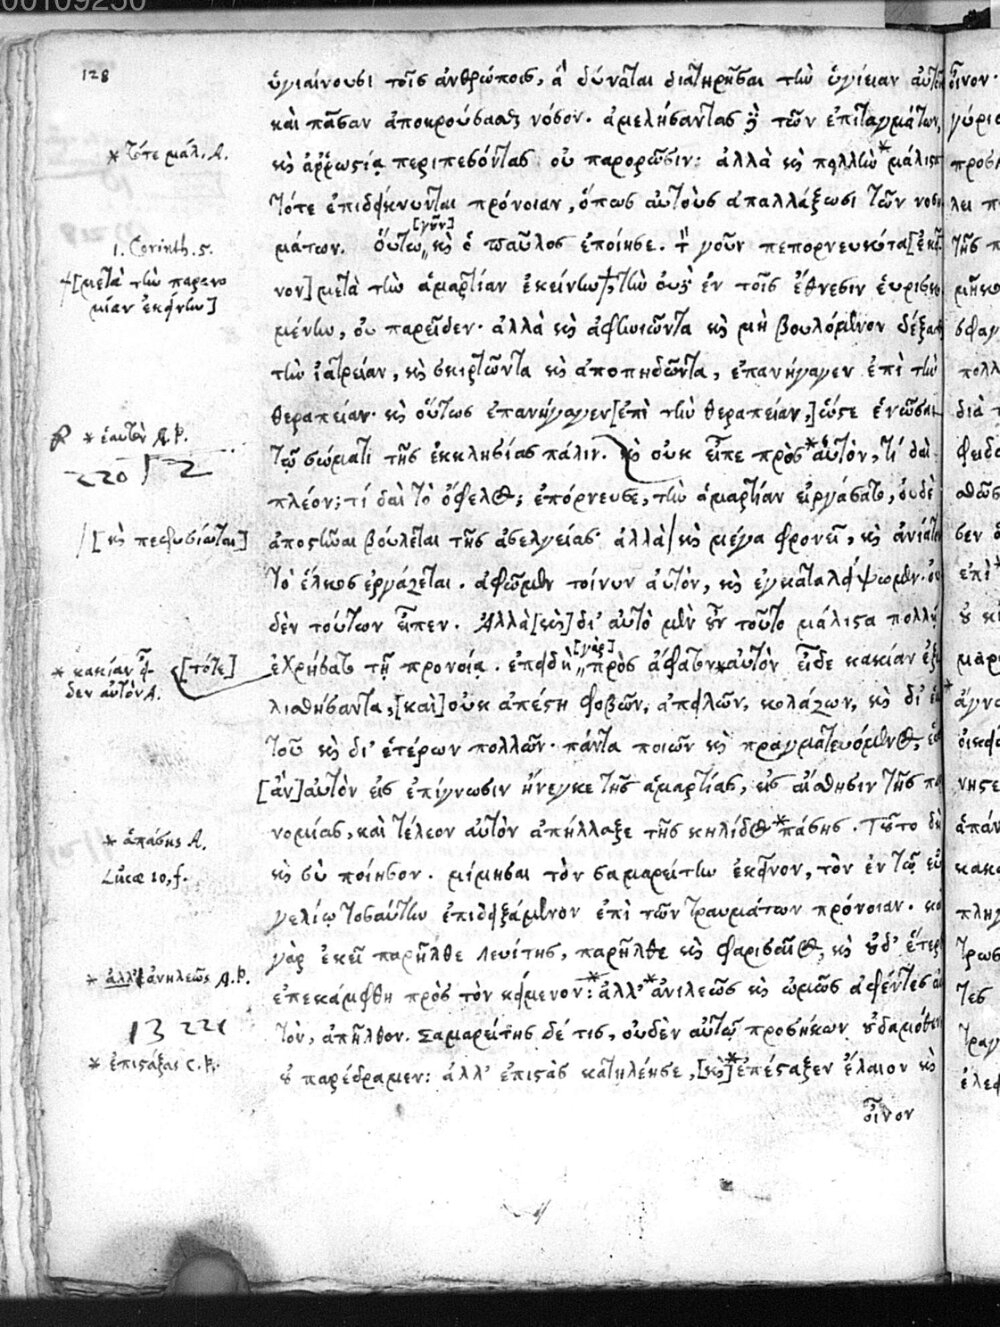 128
ὑγιαίνουσι τοῖς ἀνθρώποις, ἃ δύναται διατηρῆσαι τὴν ὑγίειαν αὐτῶν
καὶ πᾶσαν ἀποκρούσασθαι νόσον. ἀμελήσαντας δὲ τῶν ἐπιταγμάτων,
* τότε μάλ. A.
καὶ ἀῤῥωστίᾳ περιπεσόντας οὐ παρορῶσιν: ἀλλὰ καὶ πολλὴν * μάλιστα
τότε ἐπιδείκνυνται πρόνοιαν, ὅπως αὐτοὺς ἀπαλλάξωσι τῶν νοση
μάτων. Οὕτω [γοῦν] καὶ ὁ παῦλος ἐποίησε. τὸν γοῦν πεπορνευκότα [ἐκεῖ
1. Corinth. 5.
+ [μετὰ τὴν παρανο
μίαν ἐκείνην]
νον] μετὰ τὴν ἁμαρτίαν ἐκείνην +, τὴν οὐδὲ ἐν τοῖς ἔθνεσιν εὑρισκο
μένην, οὐ παρεῖδεν· ἀλλὰ καὶ ἀφηνιῶντα καὶ μὴ βουλόμενον δέξασθαι
τὴν ἰατρείαν, καὶ σκιρτῶντα καὶ ἀποπηδῶντα, ἐπανήγαγεν ἐπὶ τὴν
θεραπείαν· καὶ οὕτως ἐπανήγαγεν [ἐπὶ τὴν θεραπείαν,] ὥστε ἑνῶσαι
* ἑαυτὸν A.P.
220 12
τῷ σώματι τῆς ἐκκλησίας πάλιν. καὶ οὐκ εἶπε πρὸς * αὑτὸν, τί δαὶ
πλέον; τί δαὶ τὸ ὄφελος; ἐπόρνευσε, τὴν ἁμαρτίαν εἰργάσατο, οὐδὲ
/ [καὶ πεφυσίωται]
ἀποστῆναι βούλεται τῆς ἀσελγείας· ἀλλὰ / καὶ μέγα φρονεῖ, καὶ ἀνίατον
τὸ ἕλκος ἐργάζεται. ἀφῶμεν τοίνυν αὐτὸν, καὶ ἐγκαταλείψωμεν. οὐ
δὲν τούτων εἶπεν. Ἀλλὰ [καὶ] δι' αὐτὸ μὲν οὖν τοῦτο μάλιστα πολλῇ
* κακίαν εἶ-
δεν αὐτὸν A.
[τότε]
ἐχρήσατο τῇ προνοίᾳ. ἐπειδὴ [γὰρ] πρὸς ἄφατον * αὐτὸν εἶδε κακίαν ἐξο
λισθήσαντα, [καὶ] οὐκ ἀπέστη φοβῶν, ἀπειλῶν, κολάζων, καὶ δι' ἑαυ
τοῦ καὶ δι' ἑτέρων πολλῶν· πάντα ποιῶν καὶ πραγματευόμενος, ἕως
[ἂν] αὐτὸν εἰς ἐπίγνωσιν ἤνεγκε τῆς ἁμαρτίας, εἰς αἴσθησιν τῆς πα
νομίας, καὶ τέλεον αὐτὸν ἀπήλλαξε τῆς κηλίδος * πάσης. Τοῦτο δὴ
* ἁπάσης A.
Lucæ 10, f.
καὶ σὺ ποίησον. μίμησαι τὸν σαμαρείτην ἐκεῖνον, τὸν ἐν τῷ εὐ
γελίῳ τοσαύτην ἐπιδειξάμενον ἐπὶ τῶν τραυμάτων πρόνοιαν. καὶ
γὰρ ἐκεῖ παρῆλθε Λευίτης, παρῆλθε καὶ φαρισαῖος, καὶ οὐδ' ἕτερος
* ἀλλ' ἀνηλεῶς A.P.
ἐπεκάμφθη πρὸς τὸν κείμενον: * ἀλλ' * ἀνιλεῶς καὶ ὠμῶς ἀφέντες αὐ
13 221
τὸν, ἀπῆλθον. Σαμαρείτης δέ τις, οὐδὲν αὐτῷ προσήκων οὐδαμόθεν
* ἐπιστάξας C.P.
οὐ παρέδραμεν: ἀλλ' ἐπιστὰς κατηλέησε, [καὶ] * ἐπέσταξεν ἔλαιον καὶ
οἶνον